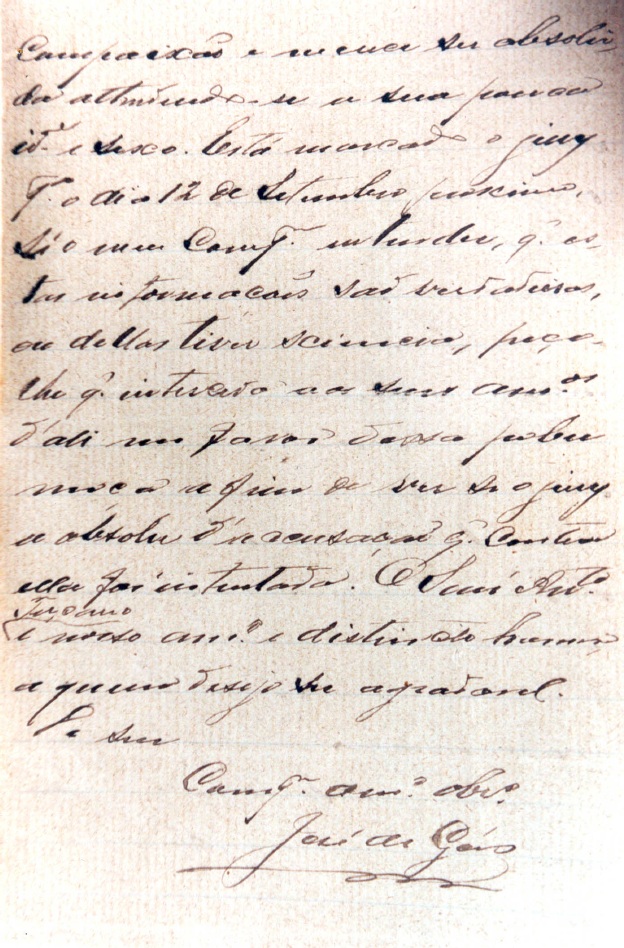 Compaixão e merece ser absolvi-
da attendendo-se a sua pouca
id.e e sexo. Está marcado o jury
p.a o dia 12 de Setembro proximo.
Si o meu Comp.e entender, q. es-
tas informacoens são verdadeiras,
ou dellas tiver sciencia, peço-
lhe q. interceda aos seus am.os
d'ali em favor dessa pobre
moça a fim de ver se o jury
a absolve d'accusação q. contra
ella foi intentada. O Snr. Ant.o
é nosso am.o e distincto homem,
a quem desejo ser agradavel.
De seu
Comp.e am.o obr.o
José de Góes